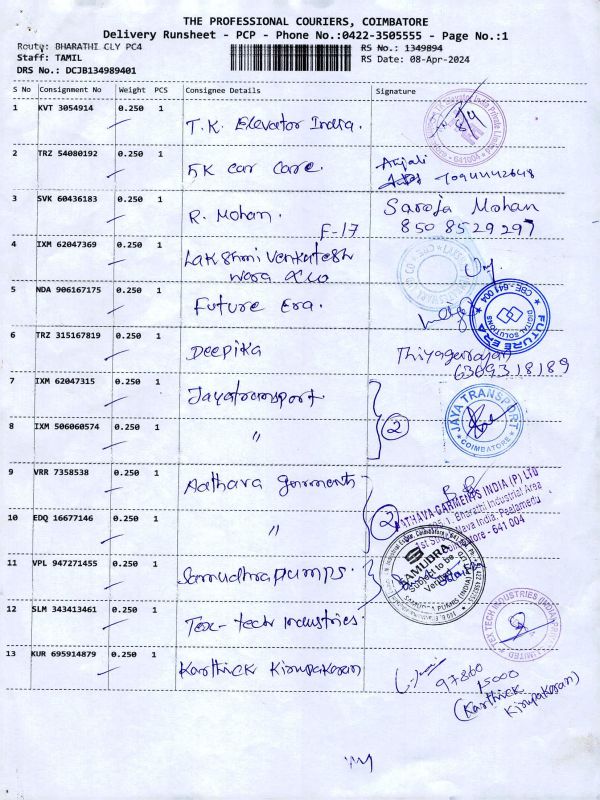 THE PROFESSIONAL COURIERS, COIMBATORE
Delivery Runsheet - PCP - Phone No.:0422-3505555 - Page No.:1
Route: BHARATHI CLY PC4
RS No.: 1349894
Staff: TAMIL
RS Date: 08-Apr-2024
DRS No.: DCJB134989401
S No Consignment No Weight PCS Consignee Details Signature
1 KVT 3054914 0.250 1 T.K. Elevator India.
641004
2 TRZ 54080192 0.250 1 5K car care. Anjali
3 SVK 60436183 0.250 1 R. Mohan. F-17 Saroja Mohan
8508529297
4 IXM 62047369 0.250 1 Lakshmi Venkatesh
wara &co
5 NDA 906167175 0.250 1 Future Era.
FUTURE ERA DIGITAL SOLUTIONS CBE-641 004
6 TRZ 315167819 0.250 1 Deepika Thiyagarajan
6369318189
7 IXM 62047315 0.250 1 Jayatransport
JAYA TRANSPORT COIMBATORE
8 IXM 506060574 0.250 1 " 2
9 VRR 7358538 0.250 1 Aathava garments
AATHAVA GARMENTS INDIA (P) LTD
Bharathi Industrial Area
Peelamedu
641 004
10 EDQ 16677146 0.250 1 " 2
11 VPL 947271455 0.250 1 Samudhrapumps.
SAMUDRA
Subject to be
SAMUDRA PUMPS (INDIA)
12 SLM 343413461 0.250 1 Tex-tech industries.
TEX TECH INDUSTRIES (INDIA) PRIVATE LIMITED
13 KUR 695914879 0.250 1 Karthick Kirupakaran 97860
15000
(Karthick
Kirupakaran)